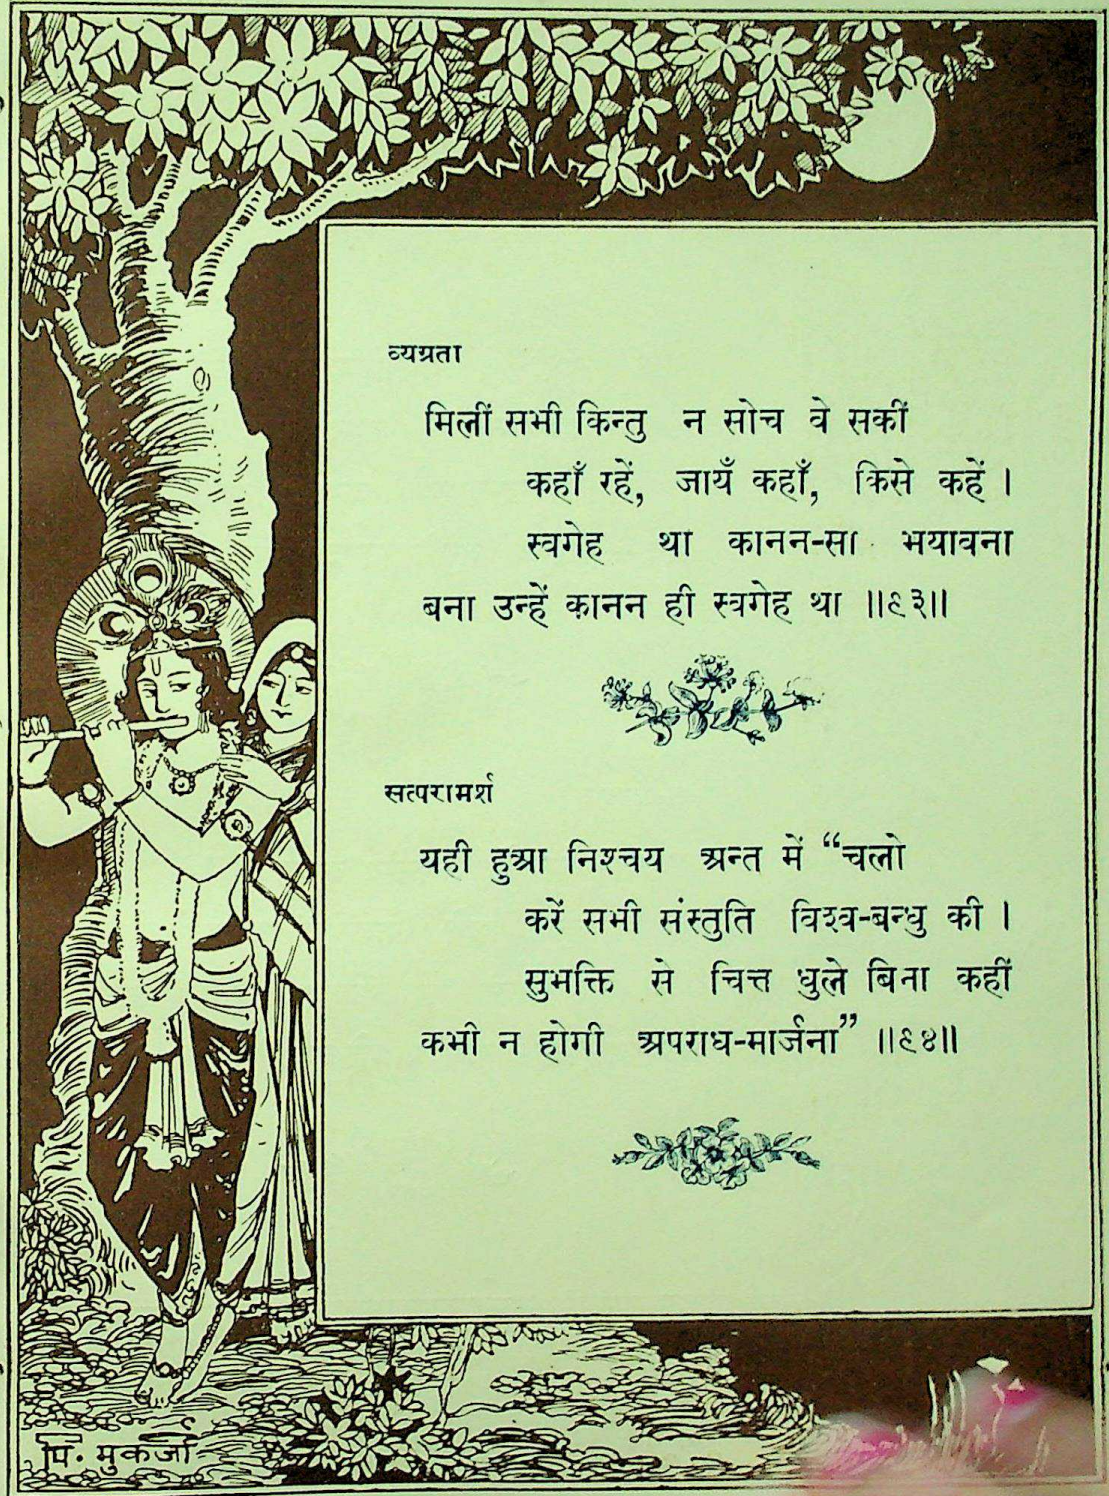 व्यग्रता
मिलीं सभी किन्तु न सोच वे सकीं
कहाँ रहें, जायँ कहाँ, किसे कहें ।
स्वगेह था कानन-सा भयावना
बना उन्हें कानन ही स्वगेह था ॥९३॥
सत्परामर्श
यही हुआ निश्चय अन्त में “चलो
करें सभी संस्तुति विश्व-बन्धु की ।
सुभक्ति से चित्त धुले बिना कहीं
कभी न होगी अपराध-मार्जना” ॥९४॥
पि. मुकर्जी